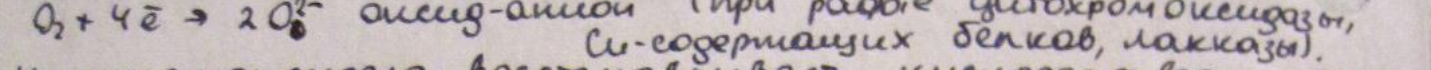 O₂ + 4ē → 2O²⁻ оксид-анион (при работе цитохромоксидазы,
Cu-содержащих белков, лакказы).